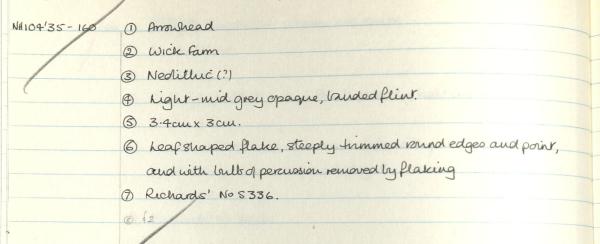 NH104'35-160 ① Arrowhead
② Wick Farm
③ Neolithic (?)
④ Light-mid grey opaque, banded flint.
⑤ 3.4cm x 3cm.
⑥ Leaf shaped flake, steeply trimmed round edges and point,
and with bulb of percussion removed by flaking
⑦ Richards' No S336.
⑧ £2